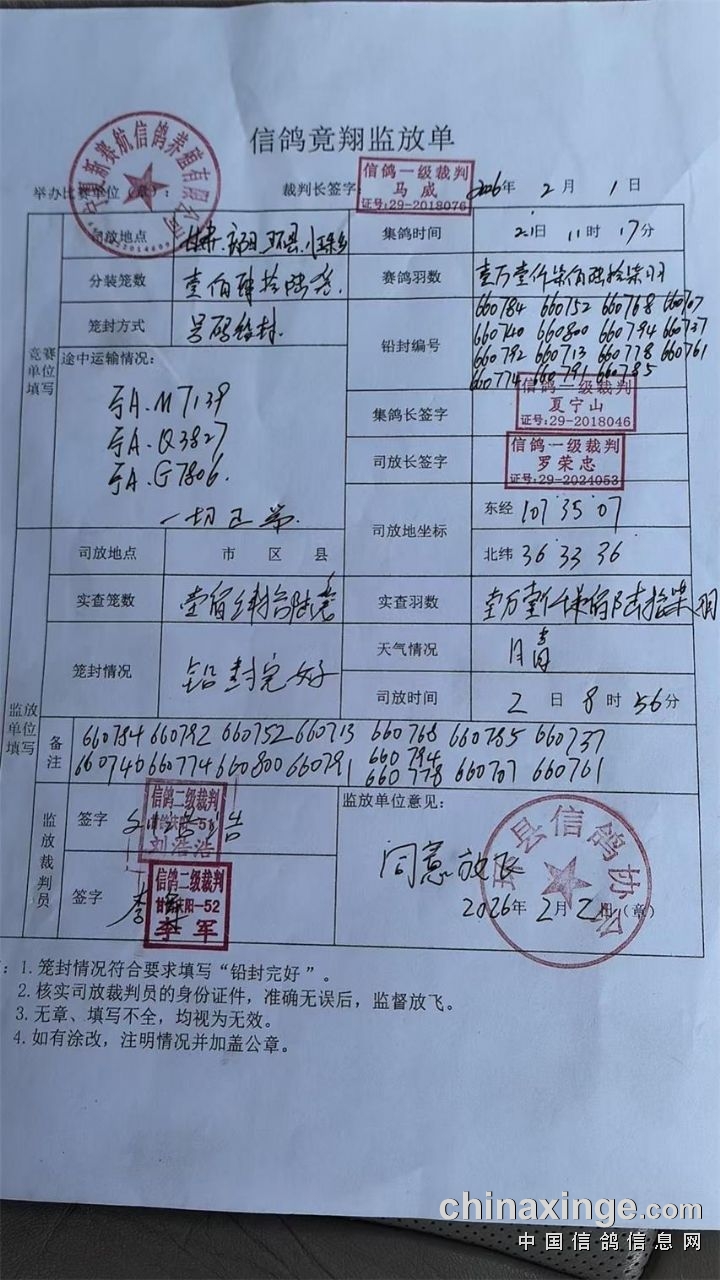 信鸽竞翔监放单
宁夏新赛航信鸽养殖有限公司
举办比赛单位(章): 裁判长签字: 2026年 2月 1日
信鸽一级裁判
马威
证号:29-2018076
司放地点 甘肃 环县 集鸽时间 2.1日 11时 17分
分装笼数 壹佰肆拾陆 赛鸽羽数 壹万壹仟柒佰陆拾柒羽
笼封方式 号码铅封 铅封编号
660784 660752 660768 660707
660740 660800 660794 660737
660792 660713 660778 660761
660774 660791 660785
竞赛单位填写
途中运输情况:
宁A.M7139
宁A.Q3827
宁A.G7806.
一切正常.
集鸽长签字
信鸽一级裁判
夏宁山
证号:29-2018046
司放长签字
信鸽一级裁判
罗荣忠
证号:29-2024053
司放地坐标 东经 107 35 07
北纬 36 33 36
司放地点 市 区 县
实查笼数 壹佰 实查羽数 壹万壹仟柒佰陆拾柒羽
笼封情况 铅封完好 天气情况 晴
司放时间 2日 8时 56分
监放单位填写
备注
660784 660792 660752 660713 660768 660785 660737
660740 660774 660800 660791 660794
660778 660707 660761
监放裁判员
签字
信鸽二级裁判
甘肃庆阳-51
刘浩浩
签字 李军
信鸽二级裁判
甘肃庆阳-52
李军
监放单位意见:
同意放飞
环县信鸽协会
2026年 2月 2日(章)
:1.笼封情况符合要求填写“铅封完好”。
2.核实司放裁判员的身份证件,准确无误后,监督放飞。
3.无章、填写不全,均视为无效。
4.如有涂改,注明情况并加盖公章。
chinaxinge.com
中国信鸽信息网